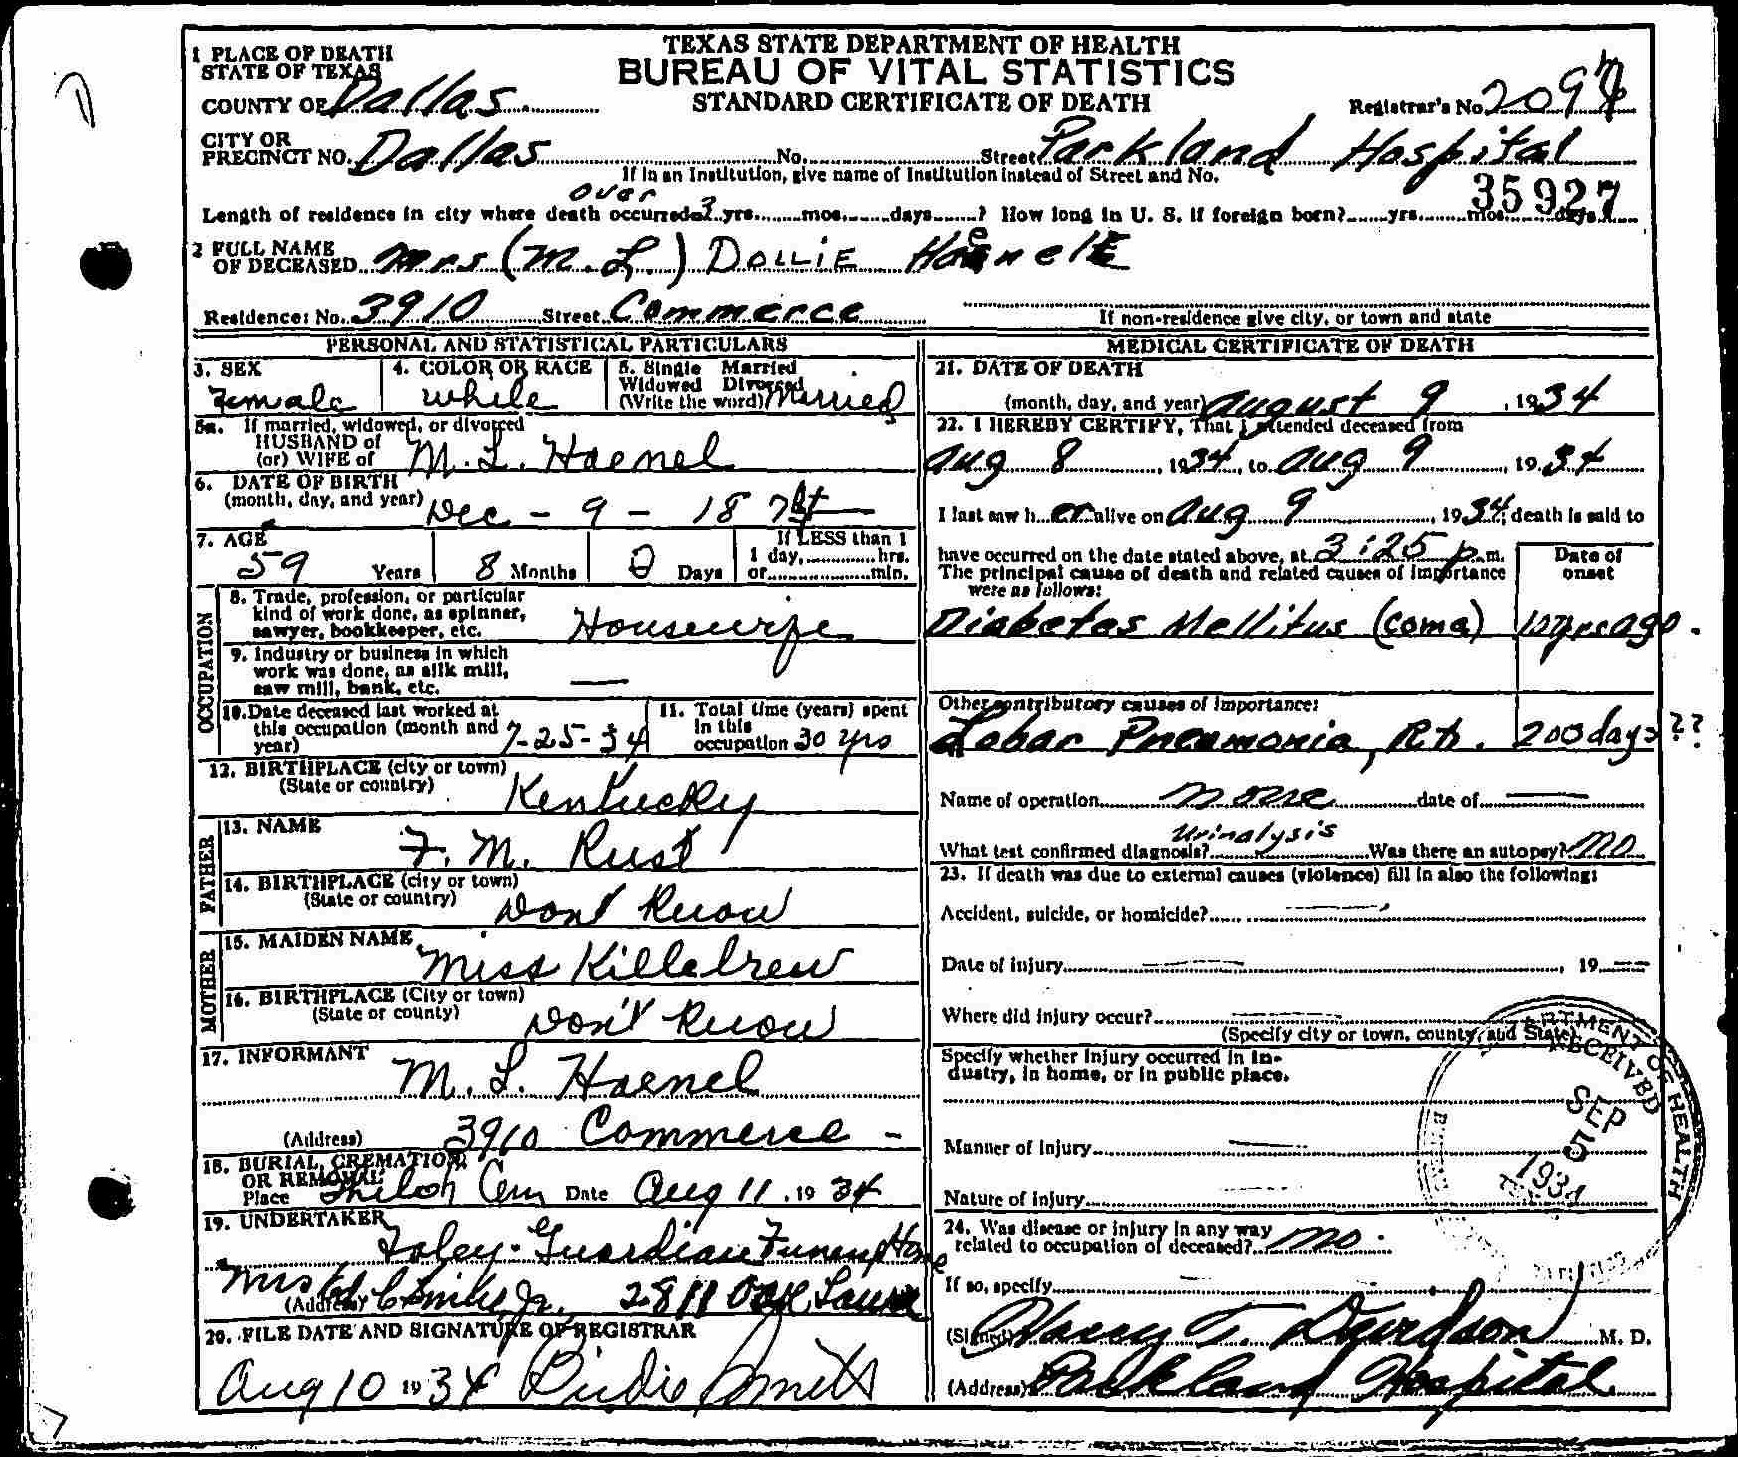 TEXAS STATE DEPARTMENT OF HEALTH
BUREAU OF VITAL STATISTICS
STANDARD CERTIFICATE OF DEATH
1 PLACE OF DEATH
STATE OF TEXAS
COUNTY OF Dallas
Registrar's No. 209
CITY OR PRECINCT NO. Dallas No. Street Parkland Hospital
If in an Institution, give name of Institution instead of Street and No.
35927
over
Length of residence in city where death occurred 3 yrs. mos. days ? How long in U. S. if foreign born? yrs. mos. days
2 FULL NAME OF DECEASED Mrs (M. L.) DOLLIE Haenele
Residence: No. 3910 Street Commerce
If non-residence give city, or town and state
PERSONAL AND STATISTICAL PARTICULARS
3. SEX Female
4. COLOR OR RACE white
5. Single Married Widowed Divorced (Write the word) Married
5a. If married, widowed, or divorced
HUSBAND of (or) WIFE of M. L. Haenel
6. DATE OF BIRTH (month, day, and year) Dec - 9 - 187
7. AGE 59 Years 8 Months 0 Days If LESS than 1 day, hrs. or min.
OCCUPATION
8. Trade, profession, or particular kind of work done, as spinner, sawyer, bookkeeper, etc. Housewife
9. Industry or business in which work was done, as silk mill, saw mill, bank, etc. —
10. Date deceased last worked at this occupation (month and year) 7-25-34
11. Total time (years) spent in this occupation 30 yrs
12. BIRTHPLACE (city or town) (State or country) Kentucky
FATHER
13. NAME F. M. Rust
14. BIRTHPLACE (city or town) (State or country) Don't Know
MOTHER
15. MAIDEN NAME Miss Killebrew
16. BIRTHPLACE (City or town) (State or county) Don't Know
17. INFORMANT M. L. Haenel
(Address) 3910 Commerce -
18. BURIAL, CREMATION, OR REMOVAL
Place Shiloh Cem Date Aug 11, 1934
19. UNDERTAKER
Foley-Guardian Funeral Home
(Address) 2811 Oak Lawn
20. FILE DATE AND SIGNATURE OF REGISTRAR
Aug 10 1934 Birdie Smith
MEDICAL CERTIFICATE OF DEATH
21. DATE OF DEATH
(month, day, and year) August 9, 1934
22. I HEREBY CERTIFY, That I attended deceased from
Aug 8, 1934, to Aug 9, 1934
I last saw her alive on Aug 9, 1934; death is said to
have occurred on the date stated above, at 3:25 p.m.
The principal cause of death and related causes of importance were as follows:
Date of onset
Diabetes Mellitus (coma) 10 yrs ago.
Other contributory causes of importance:
Lobar Pneumonia, Rt. days ??
Name of operation none date of —
What test confirmed diagnosis? Urinalysis Was there an autopsy? no
23. If death was due to external causes (violence) fill in also the following:
Accident, suicide, or homicide? —
Date of injury — , 19 —
Where did injury occur? —
(Specify city or town, county, and State)
Specify whether injury occurred in industry, in home, or in public place.
Manner of injury —
Nature of injury
24. Was disease or injury in any way related to occupation of deceased? no.
If so, specify
(Signed) Harry T. Davidson M. D.
(Address) Parkland Hospital
DEPARTMENT OF HEALTH
RECEIVED
SEP
5
1934